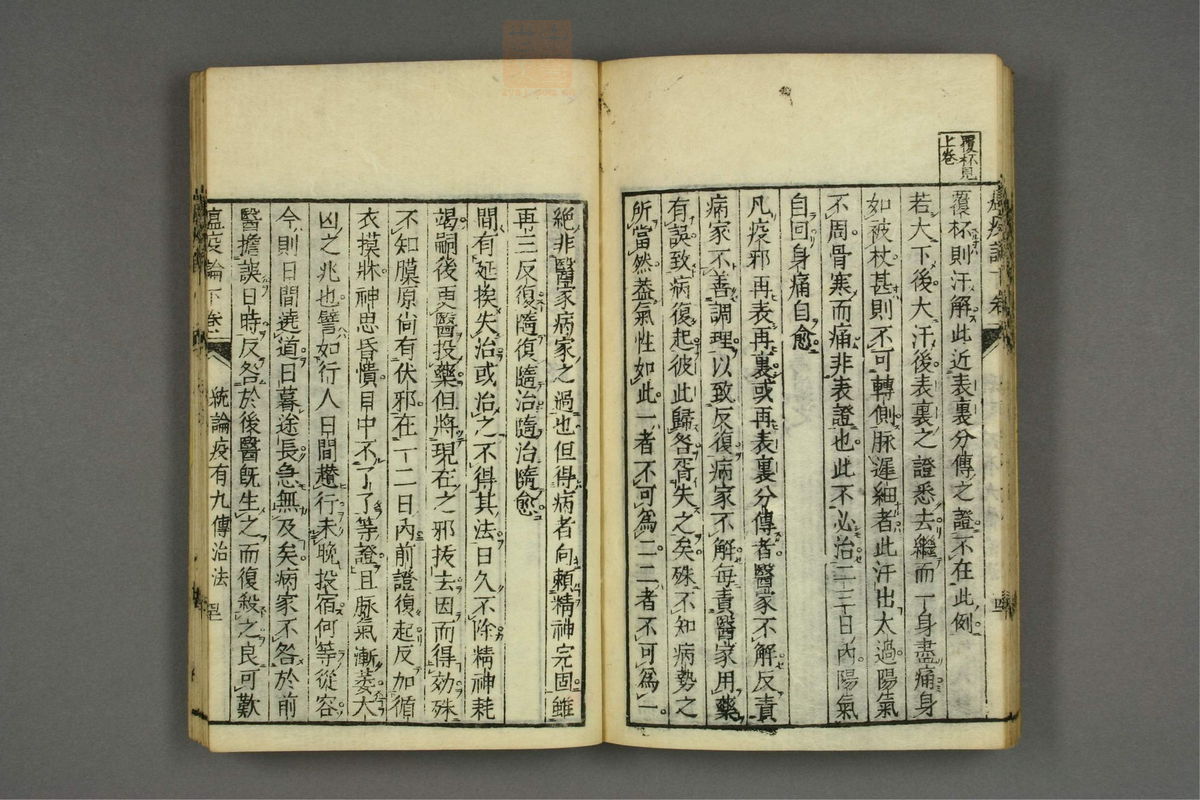 覆杯見
上卷
覆杯則汗解此近表裏分傳之證不在此例
若大下後大汗後表裏之證悉去繼而一身盡痛身
如被杖甚則不可轉側脉遲細者此汗出太過陽氣
不周骨寒而痛非表證也此不必治二三日內陽氣
自回身痛自愈
凡疫邪再表再裏或再表裏分傳者醫家不解反責
病家不善調理以致反復病家不解每責醫家用藥
有誤致病復起彼此歸咎胥失之矣殊不知病勢之
所當然葢氣性如此一者不可為二二者不可為一
絶非醫家病家之過也但得病者向賴精神完固雖
再三反復隨復隨治隨治隨愈
間有延挨失治或治之不得其法日久不除精神耗
竭嗣後更醫投藥但將現在之邪拔去因而得効殊
不知膜原尚有伏邪在一二日內前證復起反加循
衣摸牀神思昏憒目中不了了等證且脉氣漸萎大
凶之兆也譬如行人日間趲行未晚投宿何等從容
今則日間遶道日暮途長急無及矣病家不咎於前
醫擔誤日時反咎於後醫旣生之而復殺之良可歎
瘟疫論下卷 統論疫有九傳治法